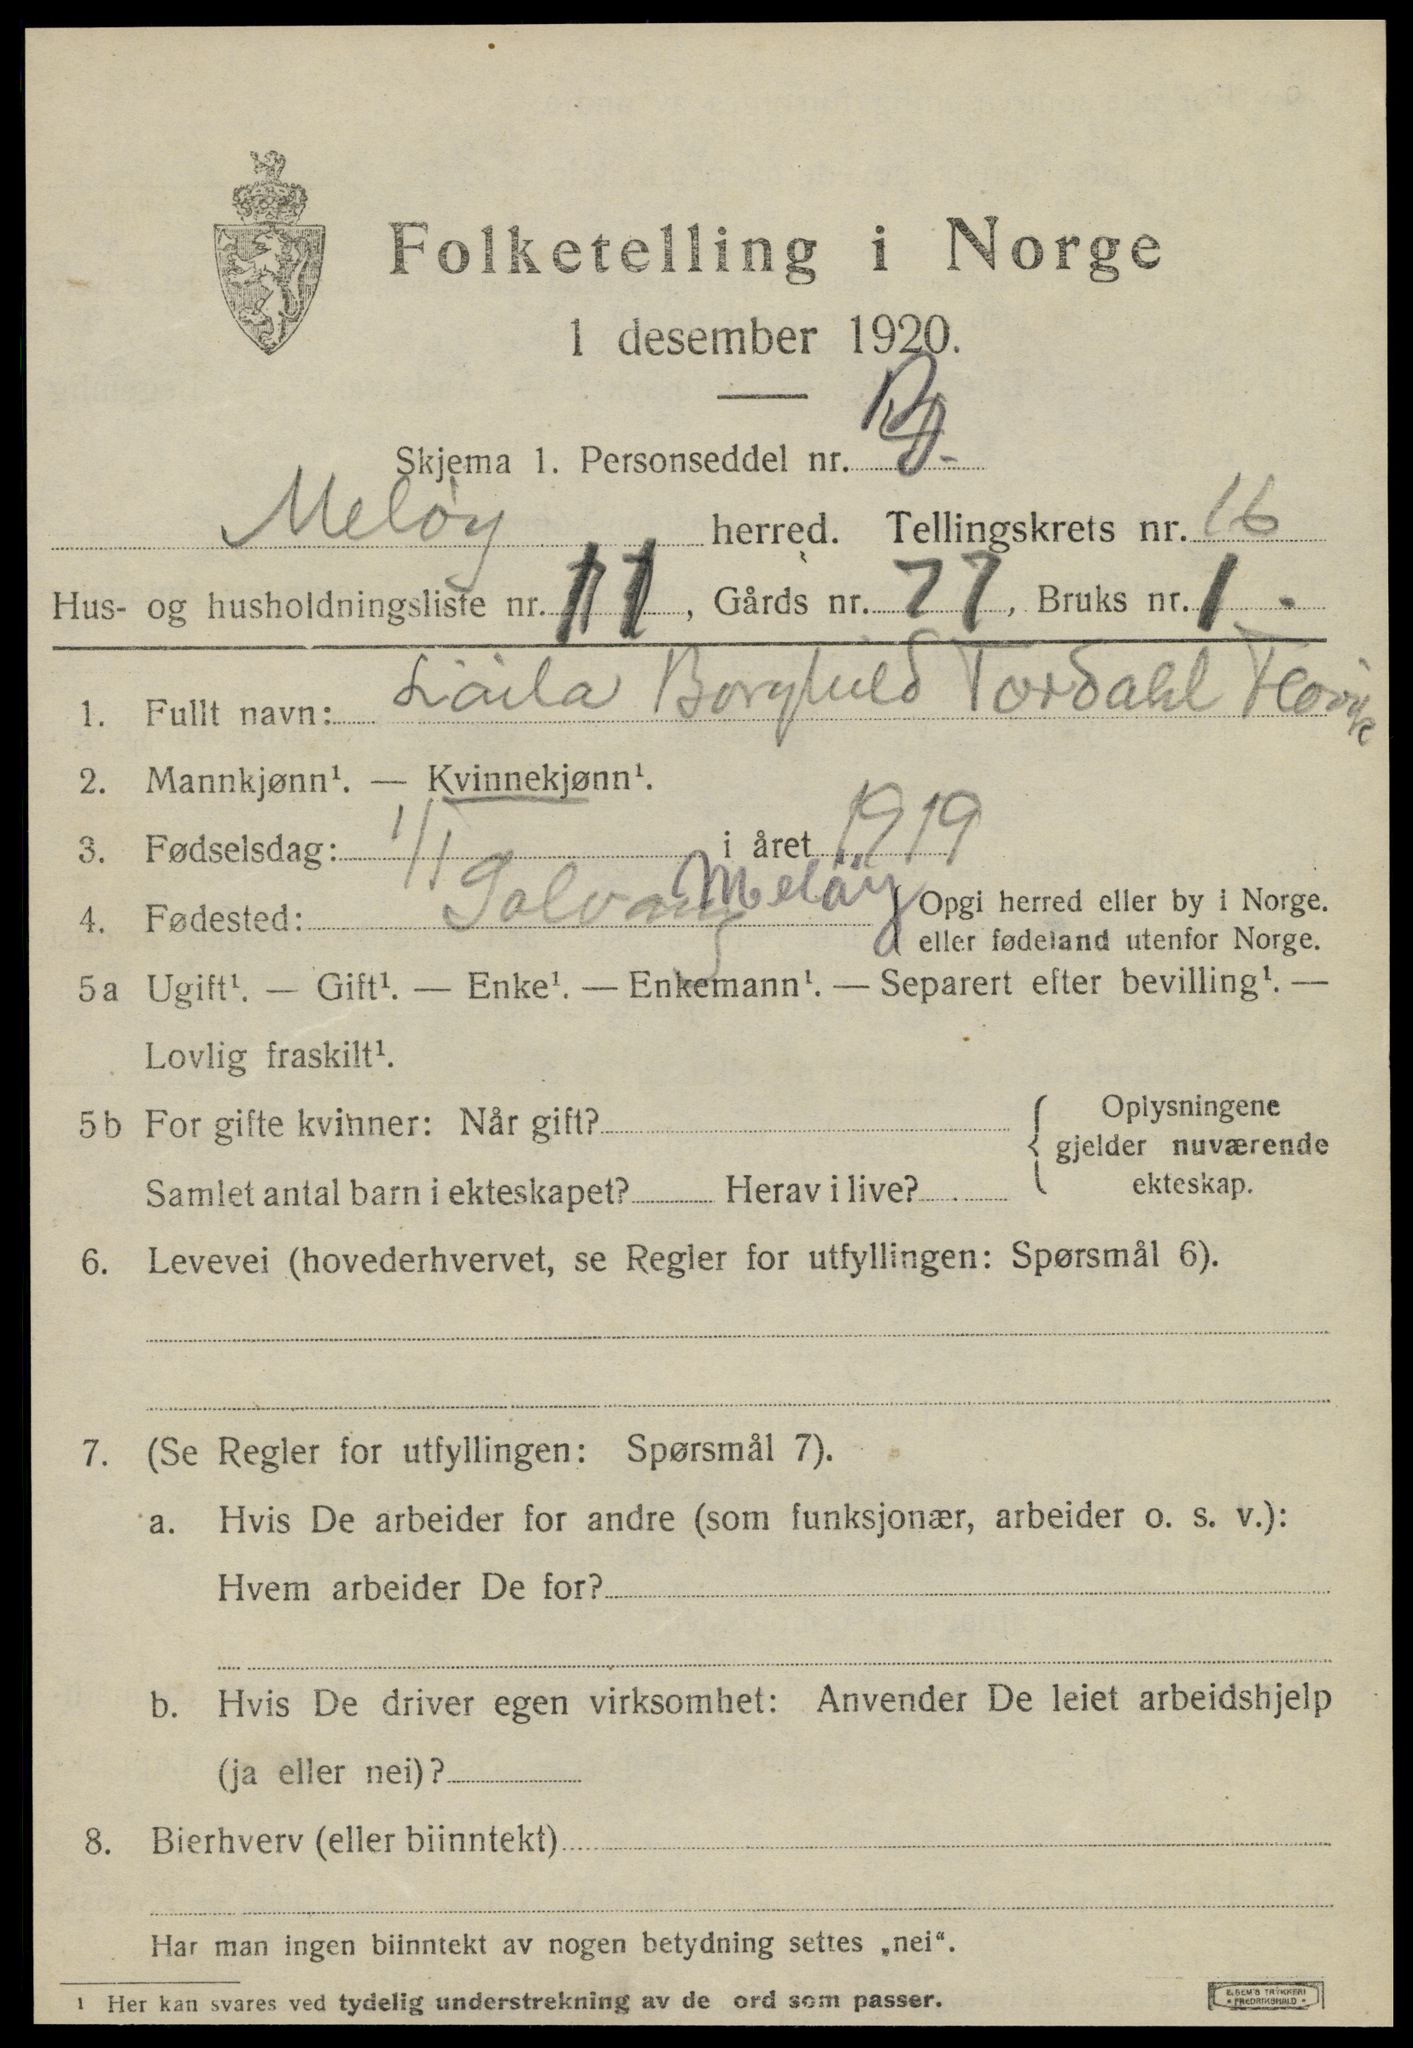 Folketelling i Norge
1 desember 1920.
Skjema 1. Personseddel nr.
Meløy herred. Tellingskrets nr. 16
Hus- og husholdningsliste nr. 11, Gårds nr. 77, Bruks nr. 1.
1. Fullt navn: Borghild Tordahl
2. Mannkjønn¹. — Kvinnekjønn¹.
3. Fødselsdag: 1/1 i året 1919
4. Fødested: Meløy { Opgi herred eller by i Norge.
eller fødeland utenfor Norge.
5a Ugift¹. — Gift¹. — Enke¹. — Enkemann¹. — Separert efter bevilling¹. —
Lovlig fraskilt¹.
5b For gifte kvinner: Når gift?
Samlet antal barn i ekteskapet? Herav i live?
{ Oplysningene
gjelder nuværende
ekteskap.
6. Levevei (hovederhvervet, se Regler for utfyllingen: Spørsmål 6).
7. (Se Regler for utfyllingen: Spørsmål 7).
a. Hvis De arbeider for andre (som funksjonær, arbeider o. s. v.):
Hvem arbeider De for?
b. Hvis De driver egen virksomhet: Anvender De leiet arbeidshjelp
(ja eller nei)?
8. Bierhverv (eller biinntekt)
Har man ingen biinntekt av nogen betydning settes „nei“.
¹ Her kan svares ved tydelig understrekning av de ord som passer.
E. SEM'S TRYKKERI
FREDRIKSHALD